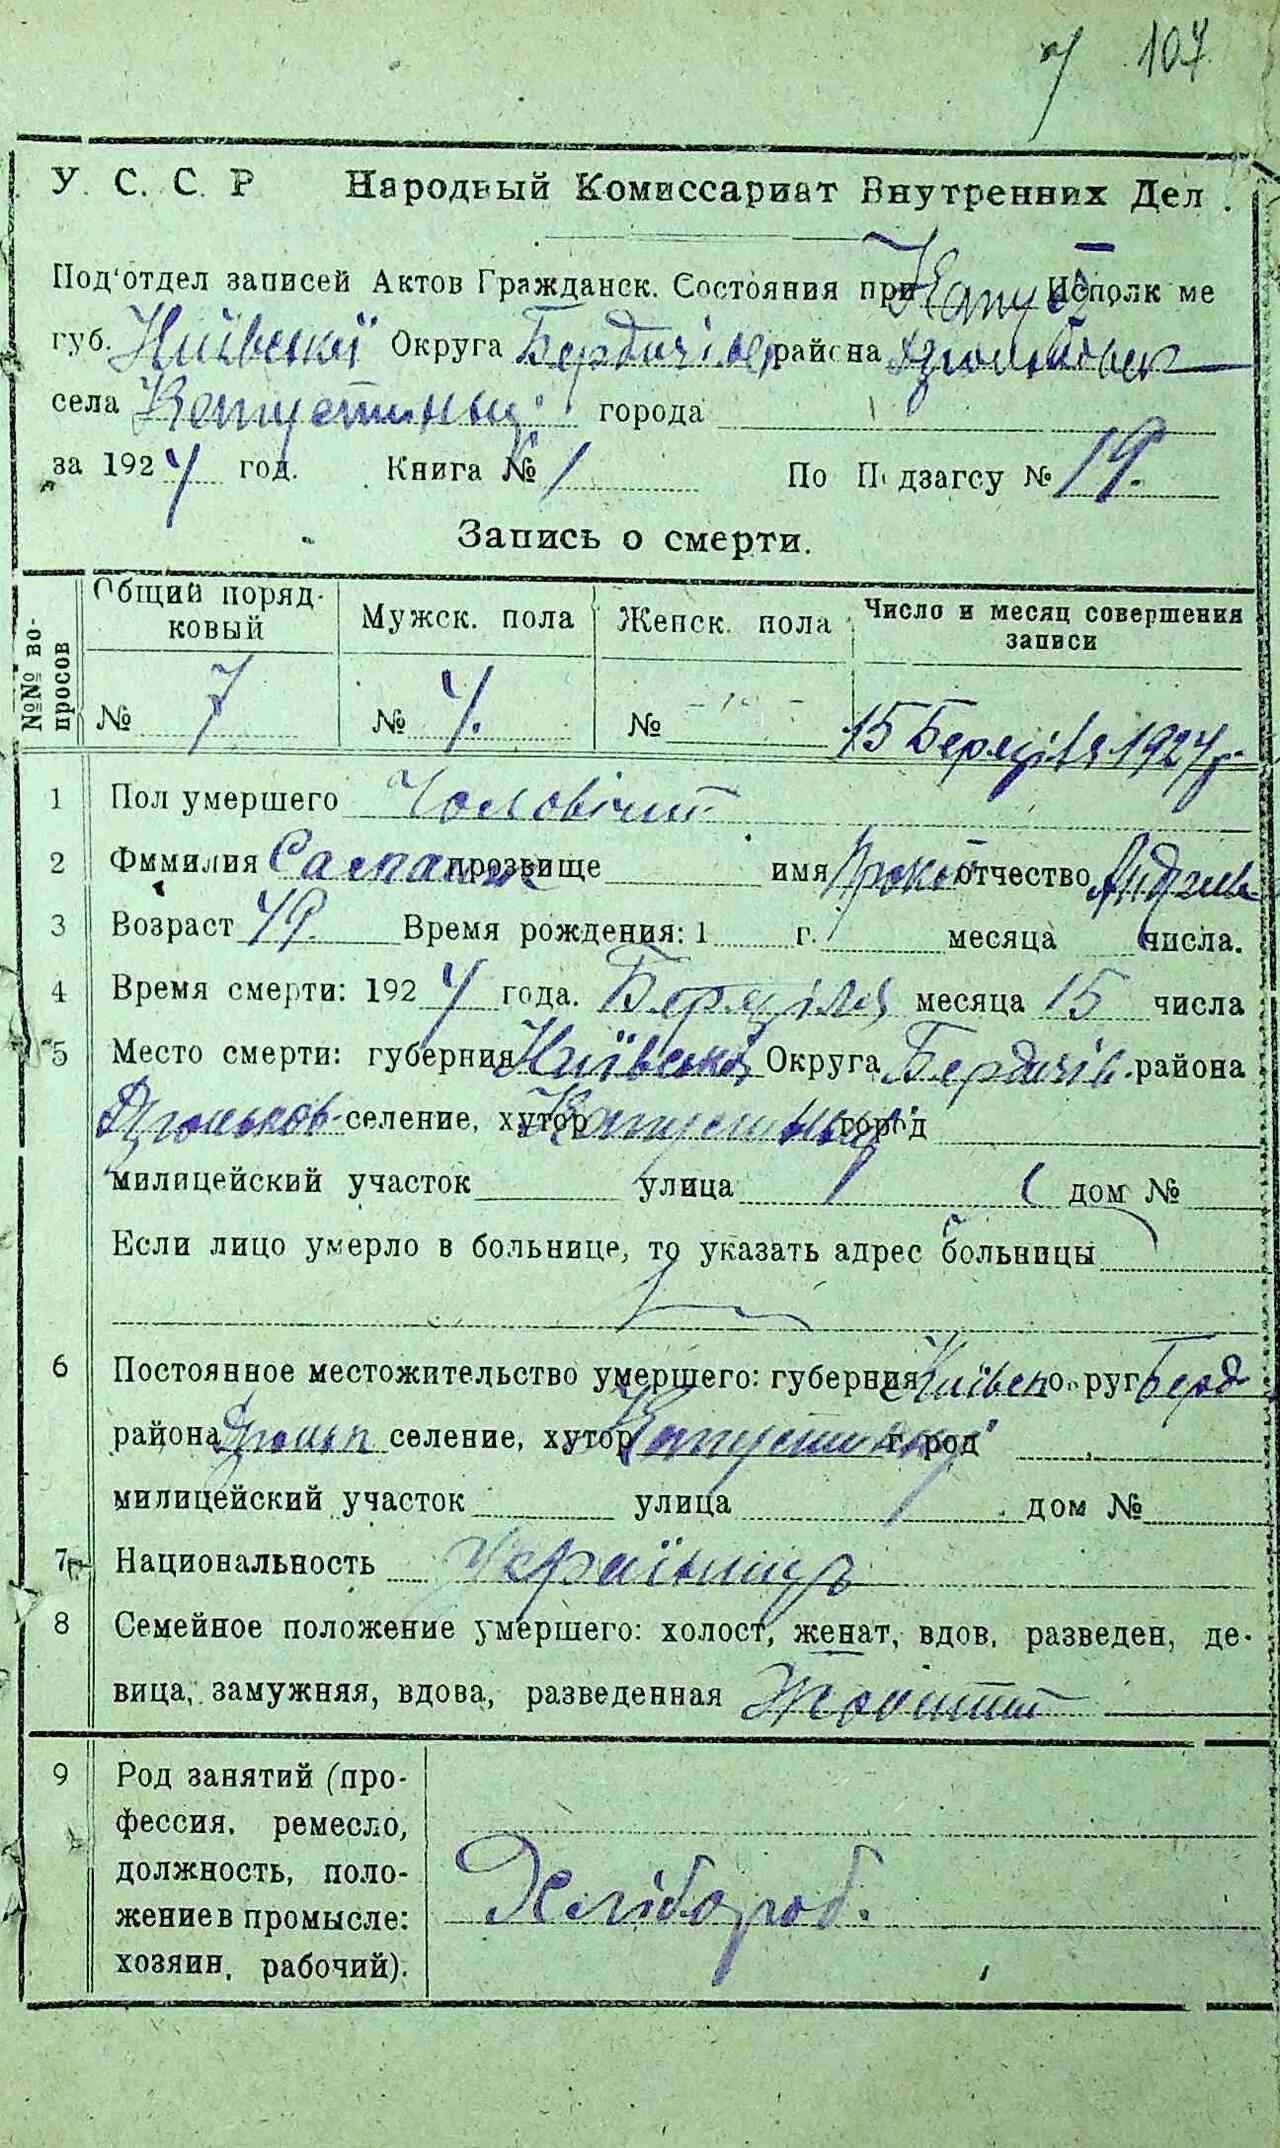 7 107
У. С. С. Р Народный Комиссариат Внутренних Дел.
Под'отдел записей Актов Гражданск. Состояния при Исполк ме
губ. Київської Округа Бердичів района
села Капустинці города
за 1924 год. Книга № 1 По П дзагсу № 19.
Запись о смерти.
№№ вопросов
Общий порядковый Мужск. пола Женск. пола Число и месяц совершения записи
№ 7 № 4. № 15 Березіля 1924 р.
1 Пол умершего Чоловічит
2 Фммилия прозвище имя Прокоп отчество
3 Возраст 49. Время рождения: 1 г. месяца числа.
4 Время смерти: 1924 года. Березіля месяца 15 числа
5 Место смерти: губерния Київська Округа Бердичів. района
селение, хутор Капустинці город
милицейский участок улица дом №
Если лицо умерло в больнице, то указать адрес больницы
6 Постоянное местожительство умершего: губерния Київськ о руг Берд
района селение, хутор Капустинці г род
милицейский участок улица дом №
7 Национальность Українець
8 Семейное положение умершего: холост, женат, вдов, разведен, де-
вица, замужняя, вдова, разведенная
9 Род занятий (про-
фессия, ремесло,
должность, поло-
жение в промысле:
хозяин, рабочий).
Хлібороб.